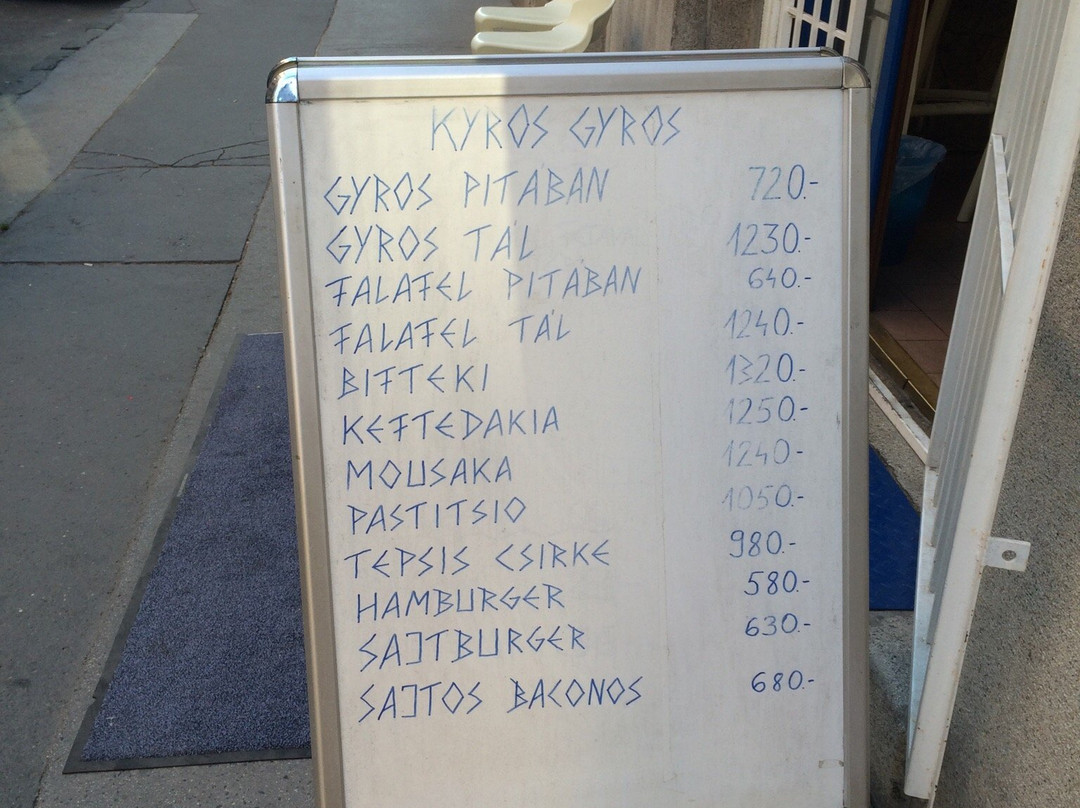 KYROS GYROS
GYROS PITABAN 720.-
GYROS TÁL 1230.-
FALAFEL PITABAN 640.-
FALAFEL TÁL 1240.-
BIFTEKI 1320.-
KEFTEDAKIA 1250.-
MOUSAKA 1240.-
PASTITSIO 1050.-
TEPSIS CSIRKE 980.-
HAMBURGER 580.-
SAJTBURGER 630.-
SAJTOS BACONOS 680.-